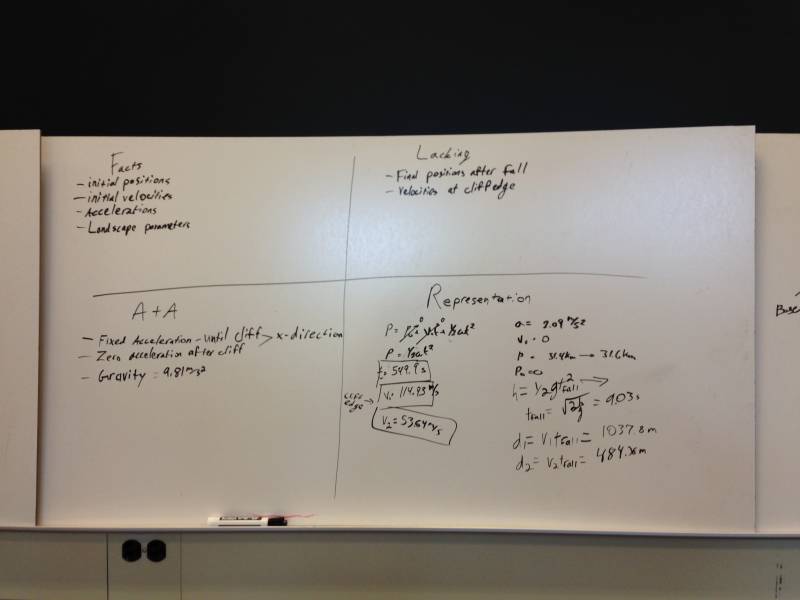 Facts
- initial positions
- initial velocities
- Accelerations
- Landscape parameters
Lacking
- Final positions after fall
- Velocities at cliff edge
A + A
- Fixed Acceleration - until cliff > x-direction
- Zero acceleration after cliff
- Gravity = 9.81 m/s²
Representation
P = ½at²
t = 549.9 s
cliff edge →
V₁ = 114.93 m/s
V₂ = 53.64 m/s
V₀ = 0
P = 31.4km → 31.6km
P₀ = 0
h = ½gt²fall
tfall = √2h/g = 9.03 s
d₁ = V₁tfall = 1037.8 m
d₂ = V₂tfall =